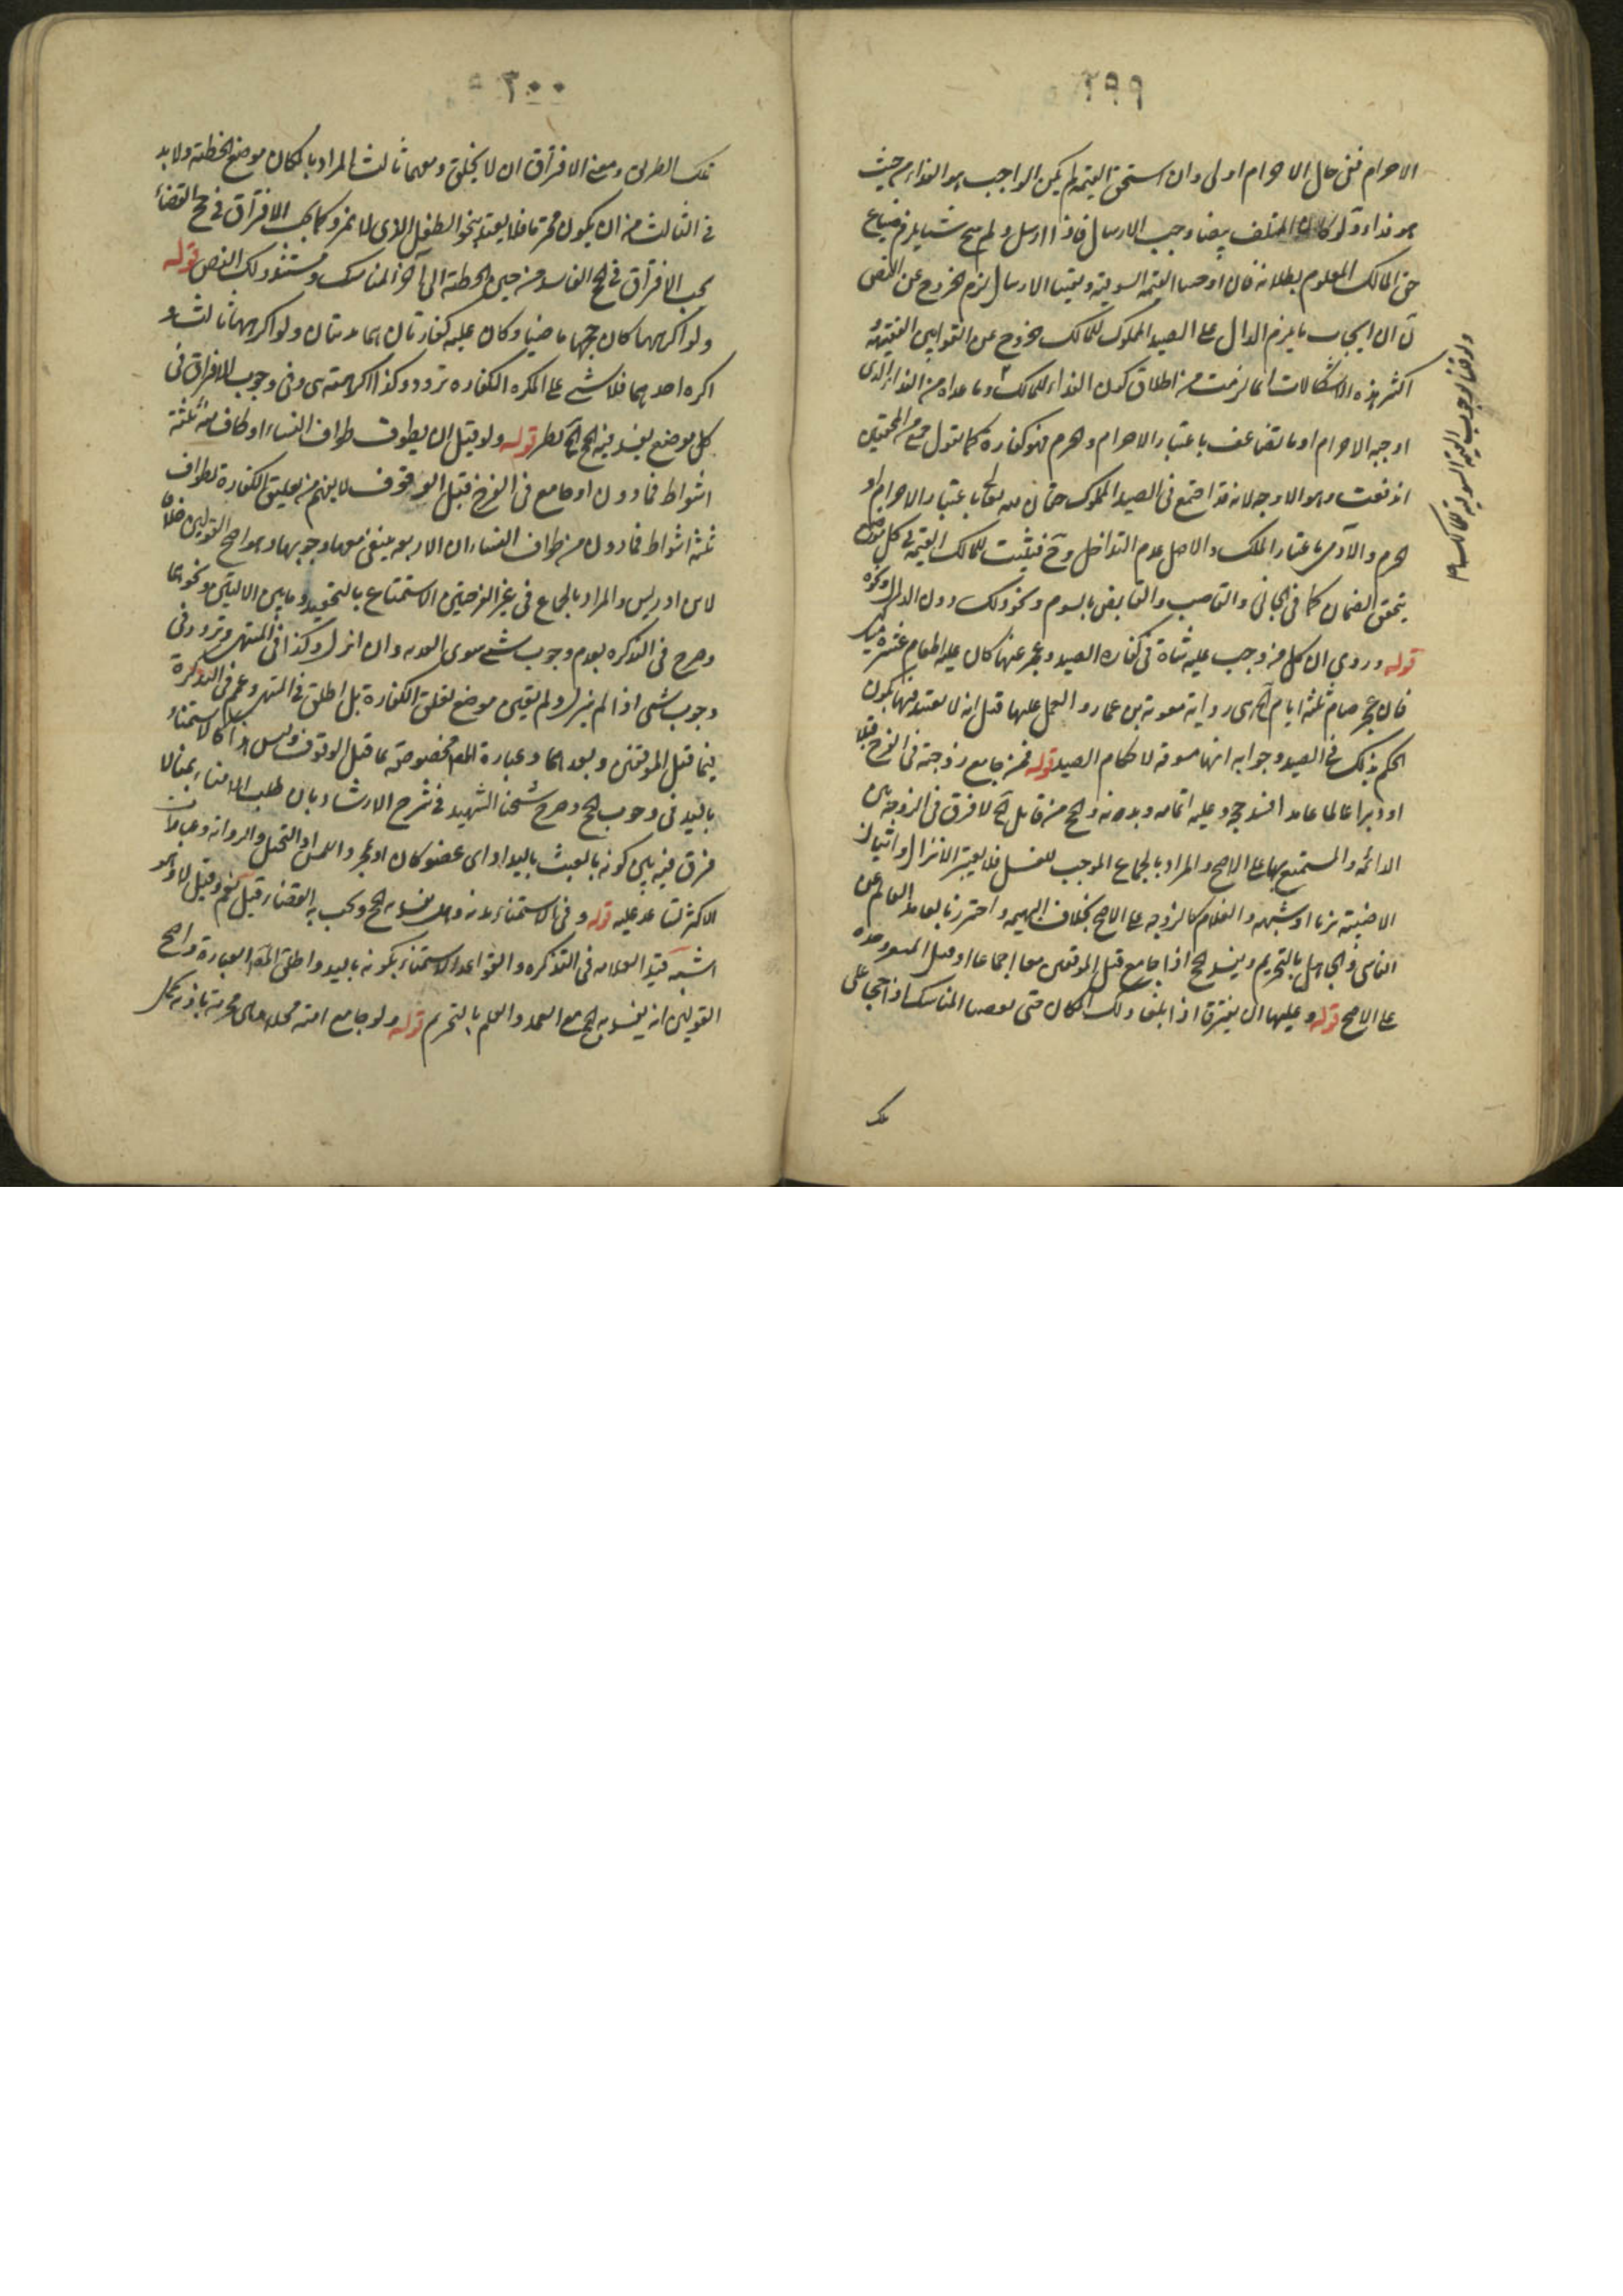 ٢٩٩
الاحرام ففي حال الاحرام اولى وان استحق القيمة لم يكن الواجب هو الفداء من حيث
هو فداء ولو كان المتلف بيضا وجب الارسال فاذا ارسل ولم ينتج شيئا يلزم ضياع
حق المالك المعلوم بطلانه فان اوجبنا القيمة السوقية ونفينا الارسال لزم الخروج عن النص
ان ايجاب ما يلزم الدال على الصيد المملوك للمالك خروج عن القوانين الفقهية
اكثر هذه الاشكالات انما لزمت من اطلاق كون الفداء للمالك وما عداه من الفداء الذي
اوجبه الاحرام او ما تضاعف باعتبار الاحرام والحرم فهو كفارة كما نقول جمع من المحققين
اندفعت وهو الاوجه لانه قد اجتمع في الصيد المملوك حقان لله تعالى باعتبار الاحرام او
الحرم والآدمي باعتبار الملك والاصل عدم التداخل وح فيثبت للمالك القيمة في كل موضع
يتحقق الضمان كما في الجاني والغاصب والقابض بالسوم ونحو ذلك دون الدال ونحوه
قوله وروي ان كل من وجب عليه شاة في كفارة الصيد وعجز عنها كان عليه اطعام عشرة مساكين
فان عجز صام ثلثة ايام الخ هي رواية معوية بن عمار والعمل عليها قيل انه لا تقييد فيها بكون
الحكم بذلك في الصيد وجوابه انها مسوقة لاحكام الصيد قوله فمن جامع زوجته في الفرج قبلا
او دبرا عالما عامدا فسد حجه وعليه اتمامه وبدنة والحج من قابل الخ لا فرق في الزوجة بين
الدائمة والمستمتع بها على الاصح والمراد بالجماع الموجب للغسل فلا يعتبر الانزال واتيان
الاجنبية بزنا او شبهة والغلام كالزوجة على الاصح بخلاف البهيمة واحترزنا بالعامد العالم عن
الناسي والجاهل بالتحريم ويفسد الحج اذا جامع قبل الموقفين معا اجماعا او قبل المشعر وحده
على الاصح قوله وعليهما ان يفترقا اذا بلغا ذلك المكان حتى يقضيا المناسك اذا حجا على
تلك
ولو قلنا بوجوب القيمة السوقية للمالك
٣٠٠
تلك الطريق ومعنى الافتراق ان لا يخلو الا ومعهما ثالث المراد بالمكان موضع الخطيئة ولا بد
في الثالث من ان يكون محترما فلا يعتد بنحو الطفل الذي لا يميز وكما يجب الافتراق في حج القضاء
يجب الافتراق في الحج الفاسد من حين الخطيئة الى آخر المناسك ومستند ذلك النص قوله
ولو اكرهها كان حجها ماضيا وكان عليه كفارتان هما بدنتان ولو اكرههما ثالث او
اكره احدهما فلا شيء على المكره الكفارة تردد وكذا اكراهها هي وفي وجوب الافتراق في
كل موضع يفسد فيه الحج نظر قوله ولو قبل ان يطوف طواف النساء او طاف منه ثلثة
اشواط فما دون او جامع في الفرج قبل الوقوف لا يفهم من تعليق الكفارة بطواف
ثلثة اشواط فما دون من طواف النساء ان الاربعة ينفى معها وجوبها وهو اصح القولين خلافا
لابن ادريس والمراد بالجماع في غير الفرجين الاستمتاع بالتفخيذ وما بين الاليتين ونحوهما
وصرح في التذكرة بعدم وجوب شيء سوى البدنة وان انزل وكذا في المنتهى وتردد في
وجوب شيء اذا لم ينزل ولم يعين موضع تعلق الكفارة بل اطلق في المنتهى وعمم في التذكرة
فيما قبل الموقفين وبعدهما وعبارة المصنف مخصوصة بما قبل الوقوف وليس هذا كالاستمناء
باليد في وجوب الحج وصرح شيخنا الشهيد في شرح الارشاد بان طلب الامناء يمنا لا
فرق فيه بين كونه بالعبث باليد او اي عضو كان او بحجر واللمس او التخيل والرواية وعبارات
الاكثر تساعد عليه قوله وفي الاستمناء بدنة وهل يفسد به الحج ويجب به القضاء قيل نعم وقيل لا وهو
اشبه قيد العلامة في التذكرة والقواعد الاستمناء بكونه باليد واطلق المصنف العبارة واصح
القولين انه يفسد به الحج مع العمد والعلم بالتحريم قوله ولو جامع امته محلا هي محرمة باذنه تحمل